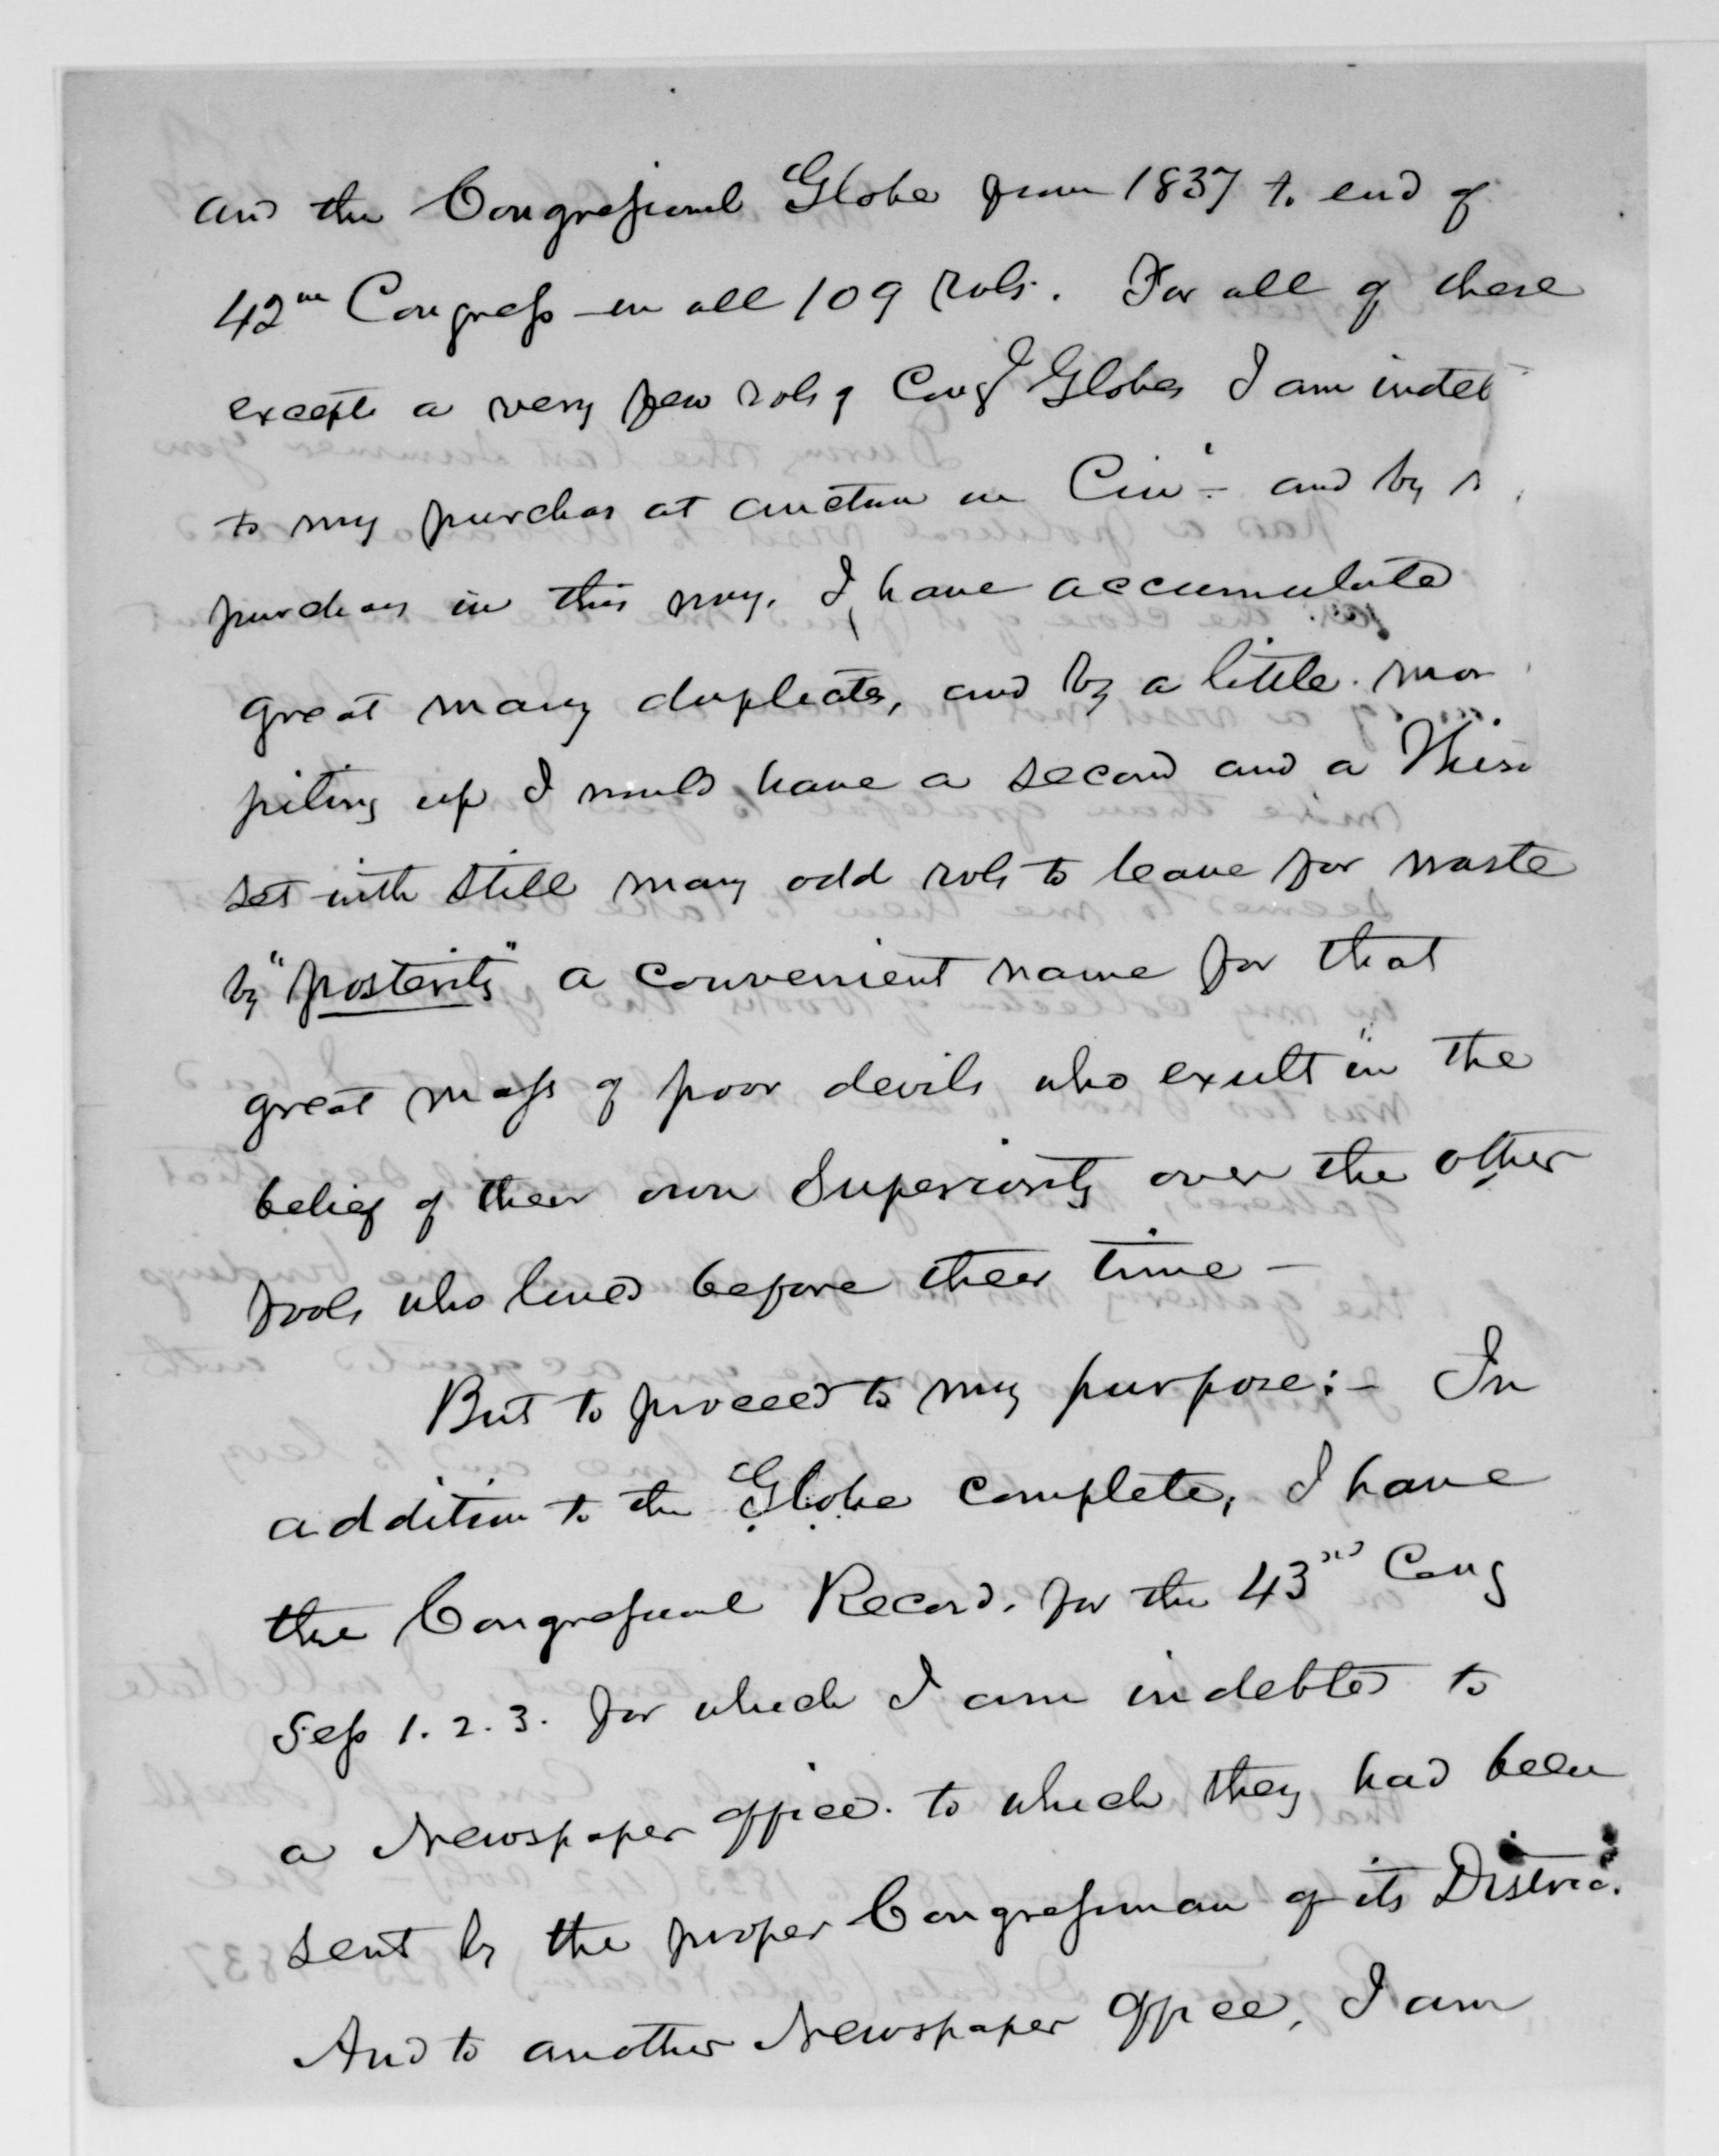 and the Congressional Globe from 1837 to end of
42nd Congress – in all 109 vols. For all of these
except a very few vols of Congl Globes I am indeb
to my purchas at auction in Cin – and by
purchases in this way, I have accumulated
great many duplicates, and by a little mor
piling up I would have a second and a Third
set with still many odd vols to leave for waste
by "posterity" a convenient name for that
great mass of poor devils who exult in the
belief of their own Superiority over the other
fools who lived before their time –
But to proceed to my purpose: – In
addition to the Globe complete, I have
the Congressional Record, for the 43rd Cong
Sess 1. 2. 3. for which I am indebted to
a Newspaper office. to which they had been
sent by the proper Congressman of its Distric.
And to another Newspaper Office, I am